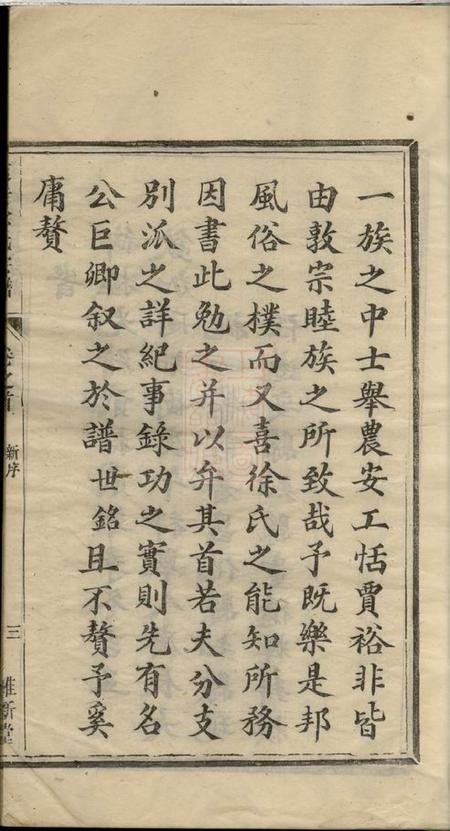 一族之中士舉農安工恬賈裕非皆
由敦宗睦族之所致哉予既樂是邦
風俗之樸而又喜徐氏之能知所務
因書此勉之并以弁其首若夫分支
別派之詳紀事錄功之實則先有名
公巨卿叙之於譜世銘且不贅予奚
庸贅
卷之首
新序
三
維新堂